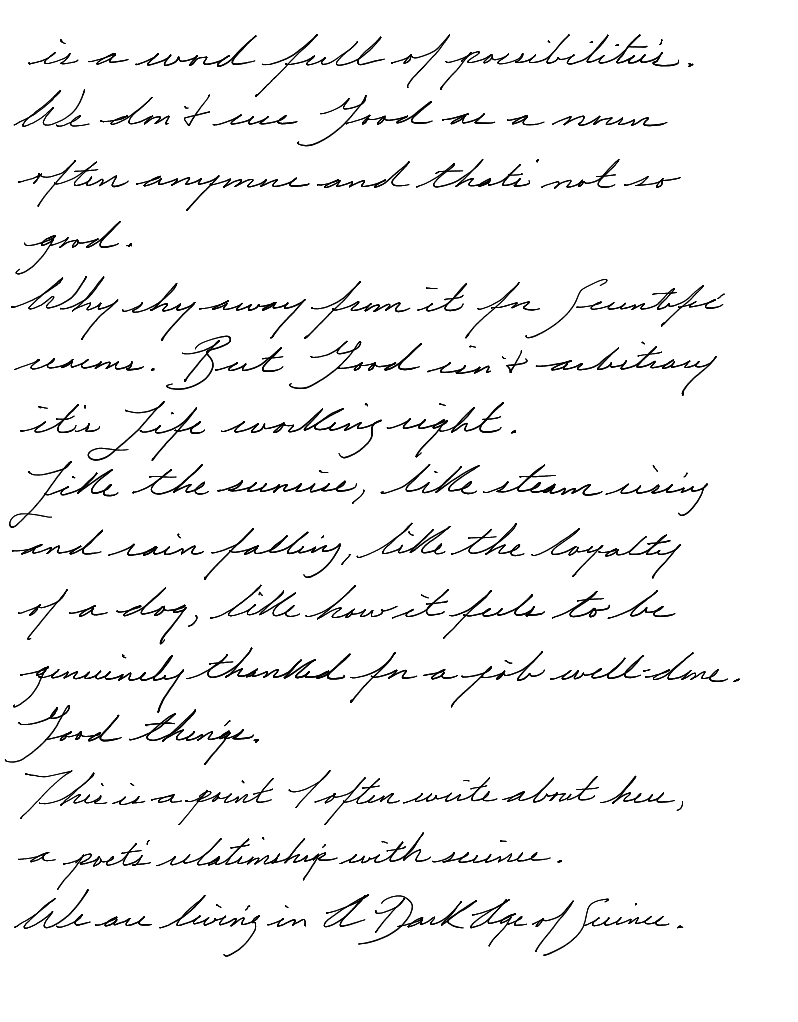 is a word full of possibilities.
We don't use Good as a noun
often anymore and that's not so
good.
Why shy away from it for Scientific
reasons. But Good isn't arbitrary
it's Life working right.
Like the sunrise, like steam rising
and rain falling, like the loyalty
of a dog, like how it feels to be
genuinely thanked for a job well-done.
Good things.
This is a point I often write about here,
a poet's relationship with science.
We are living in A Dark Age of Science.